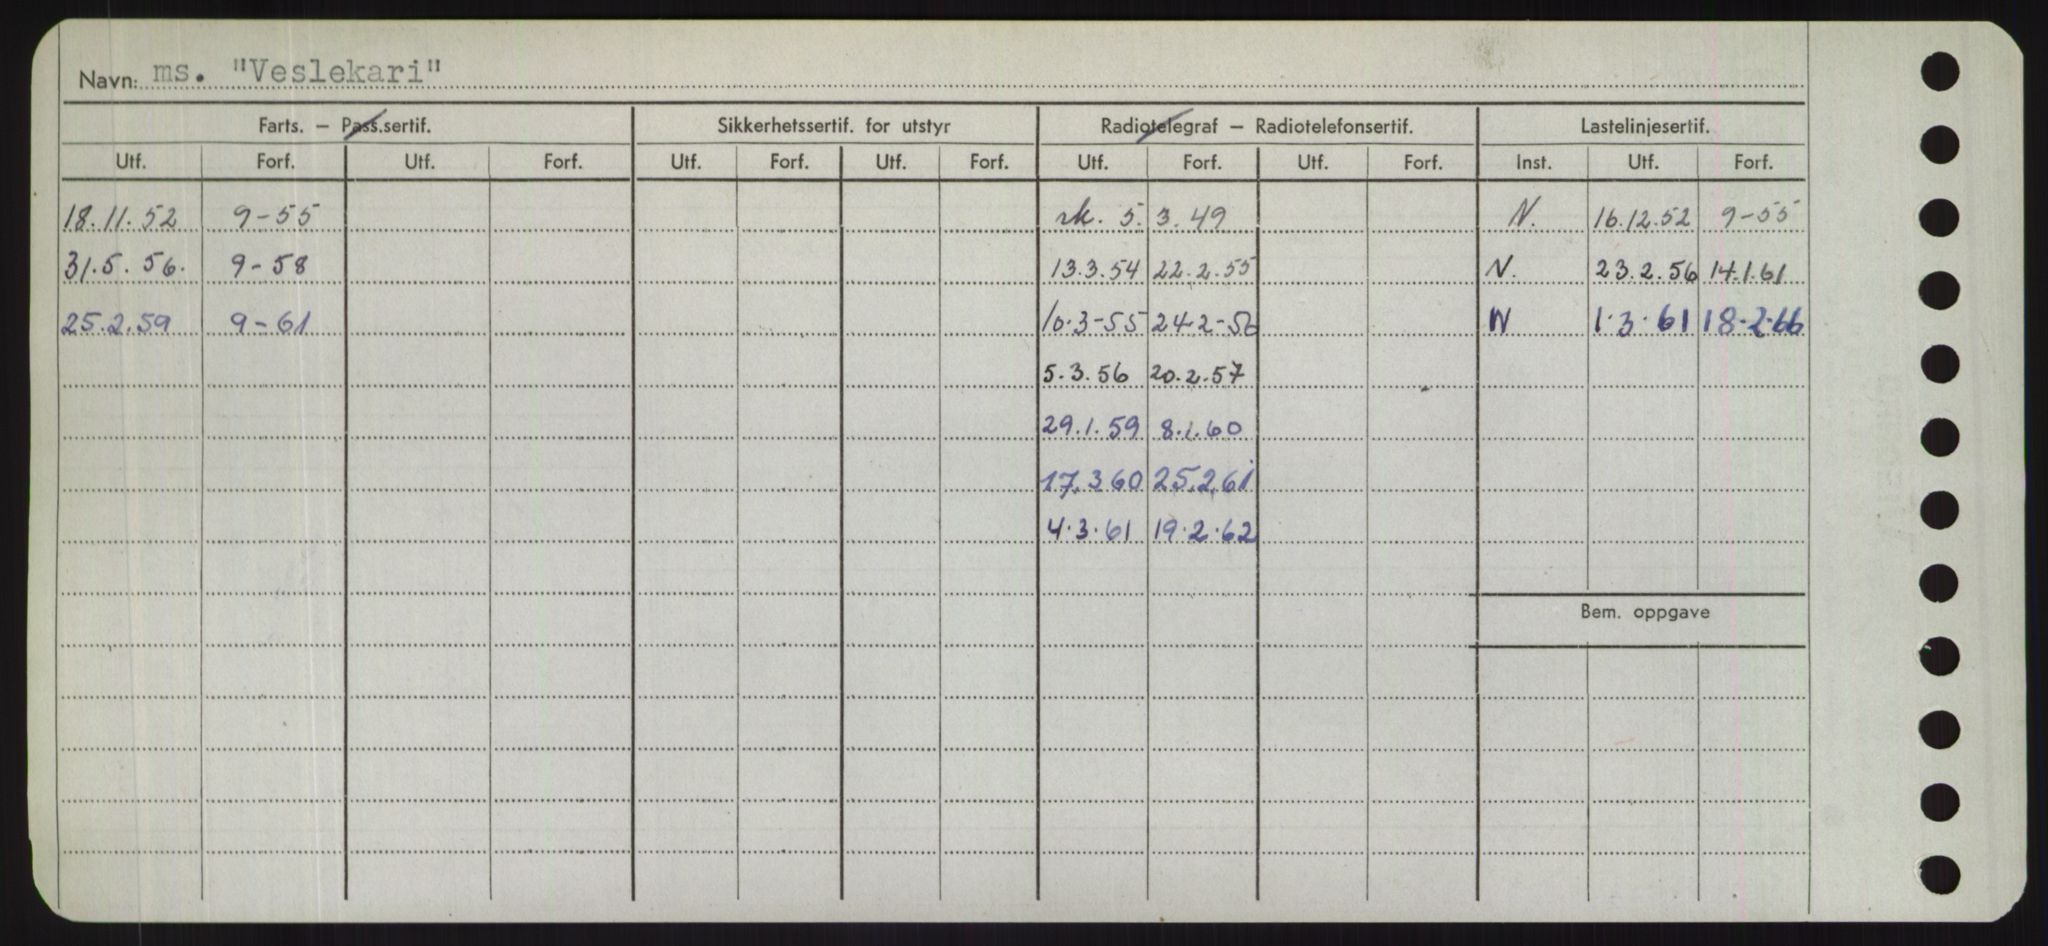 Navn: ms. "Veslekari"
Farts. – Pass.sertif. Sikkerhetssertif. for utstyr Radiotelegraf – Radiotelefonsertif. Lastelinjesertif.
Utf. Forf. Utf. Forf. Utf. Forf. Utf. Forf. Utf. Forf. Utf. Forf. Inst. Utf. Forf.
18.11.52 9-55 rk. 5.3.49 N. 16.12.52 9-55
31.5.56. 9-58 13.3.54 22.2.55 N. 23.2.56 14.1.61
25.2.59 9-61 10.3-55 24-2-56 N 1.3.61 18-2-66
5.3.56 20.2.57
29.1.59 8.1.60
17.3 60 25.2.61
4.3.61 19.2.62
Bem. oppgave